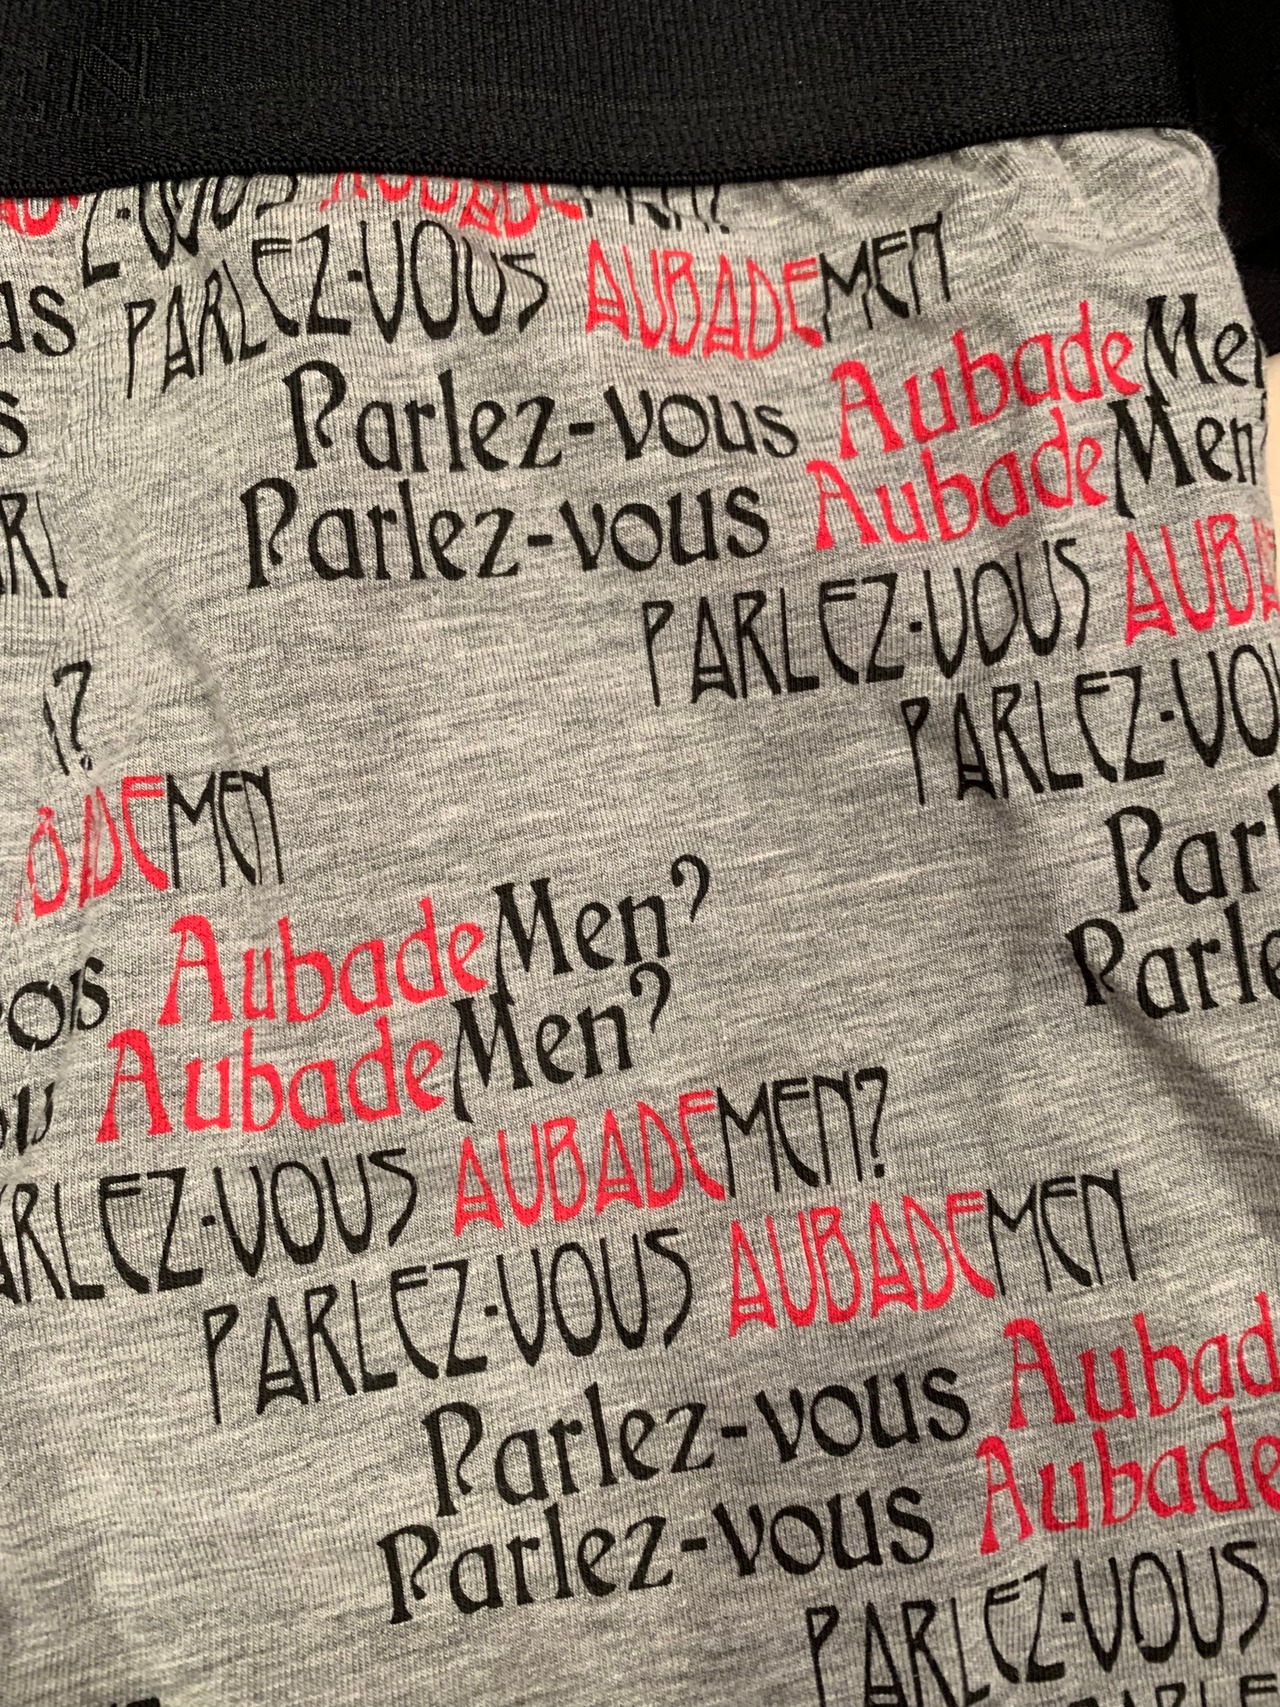 EN
Z-VOUS AUBADEMEN?
PARLEZ-VOUS AUBADEMEN
us
Parlez-vous AubadeMen
s
Parlez-vous AubadeMen?
ARL
PARLEZ-VOUS AUBA
PARLEZ-VOU
?
ADEMEN
Parl
ous AubadeMen?
Parle
AubadeMen?
ARLEZ-VOUS AUBADEMEN?
PARLEZ-VOUS AUBADEMEN
Parlez-vous Aubad
Parlez-vous Aubade
PARLEZ-VOUS
PARLE